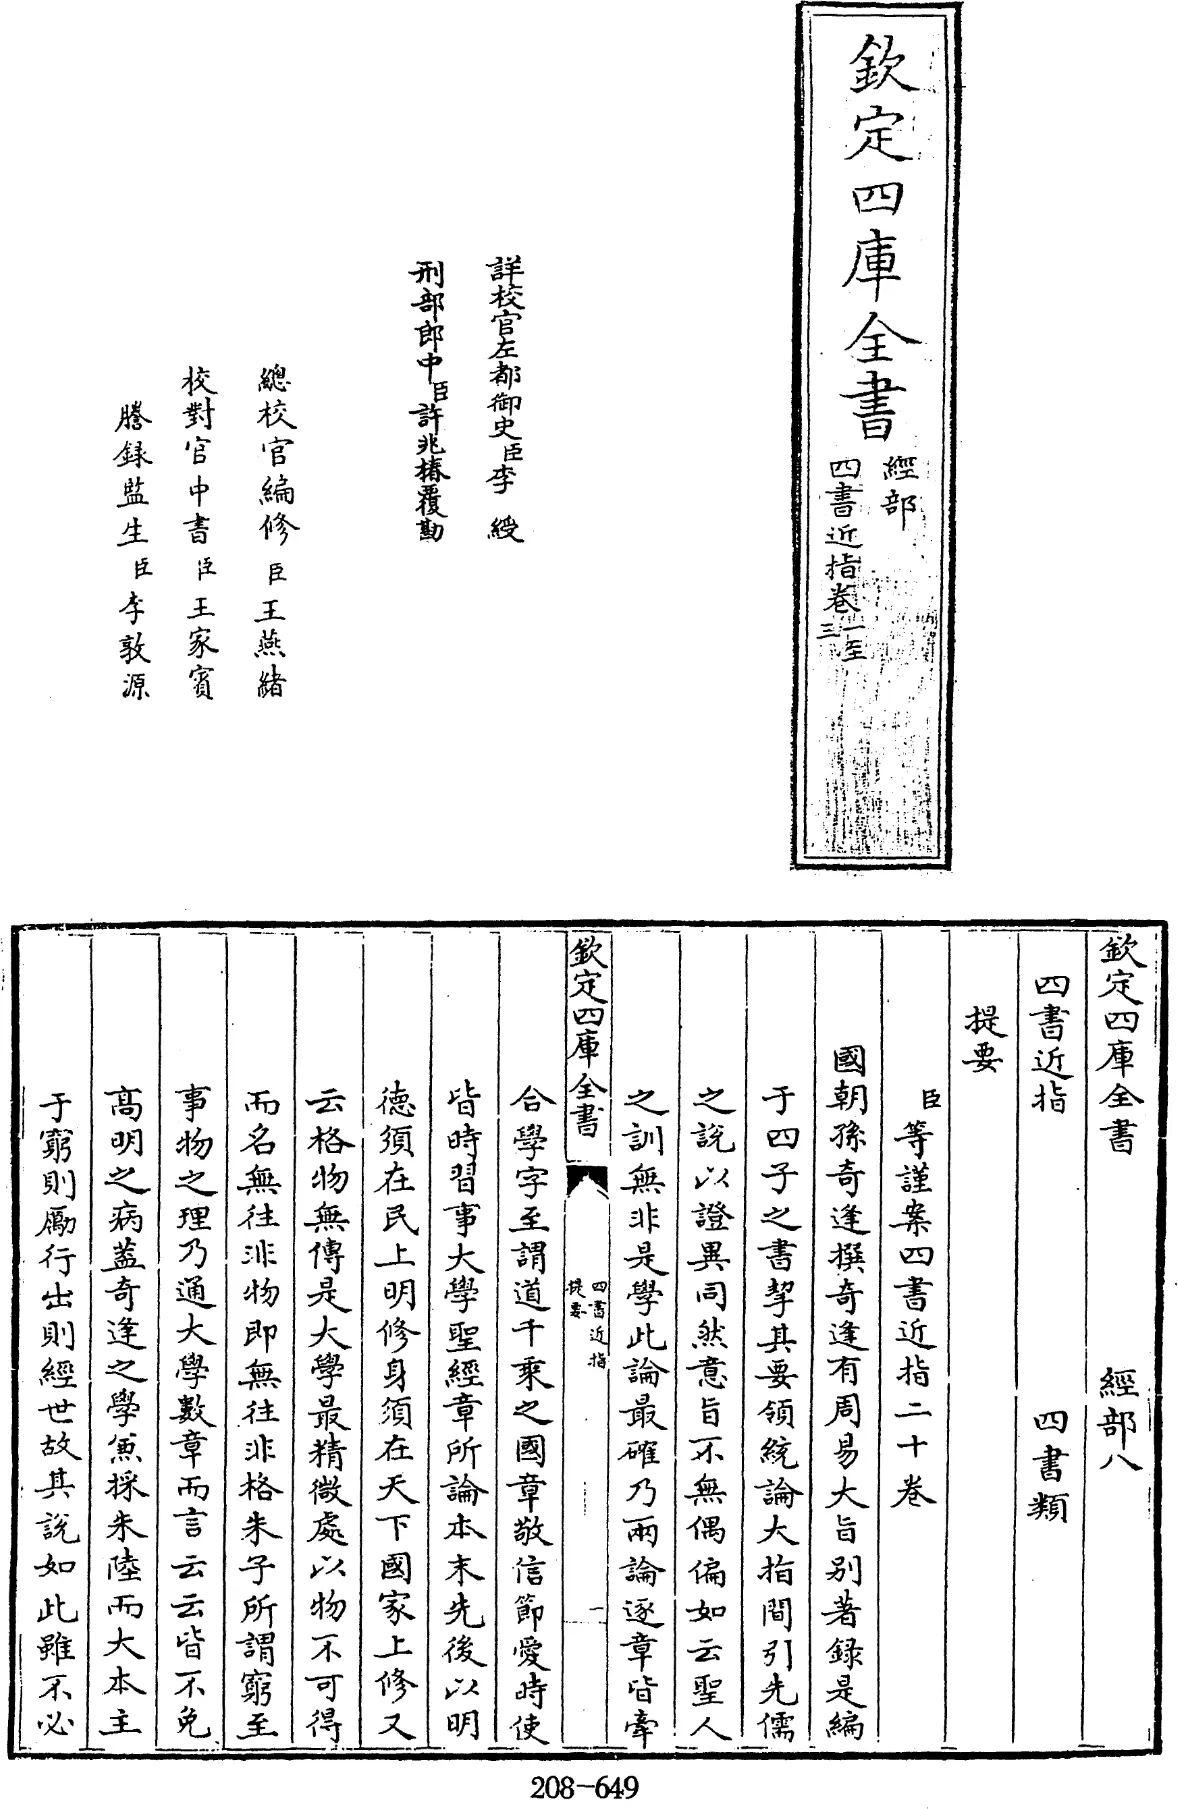 欽定四庫全書
經部
四書近指卷一至三
詳校官左都御史臣李綬
刑部郎中臣許兆椿覆勘
總校官編修臣王燕緒
校對官中書臣王家賓
謄録監生臣李敦源
欽定四庫全書 經部八
四書近指 四書類
提要
臣等謹案四書近指二十卷
國朝孫奇逢撰奇逢有周易大旨别著錄是編
于四子之書挈其要領統論大指間引先儒
之說以證異同然意旨不無偶偏如云聖人
之訓無非是學此論最確乃兩論逐章皆牽
欽定四庫全書
四書近指
提要
一
合學字至謂道千乘之國章敬信節愛時使
皆時習事大學聖經章所論本末先後以明
德須在民上明修身須在天下國家上修又
云格物無傳是大學最精微處以物不可得
而名無往非物即無往非格朱子所謂窮至
事物之理乃通大學數章而言云云皆不免
髙明之病葢奇逢之學兼採朱陸而大本主
于窮則勵行出則經世故其說如此雖不必
208-649